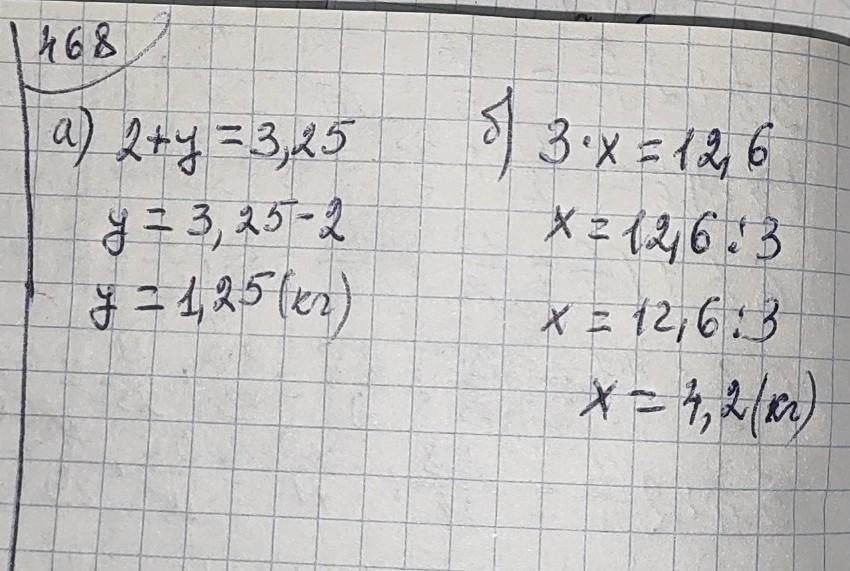 468
а) 2+y=3,25
y=3,25-2
y=1,25(кг)
б) 3·x=12,6
x=12,6:3
x=12,6:3
x=4,2(кг)